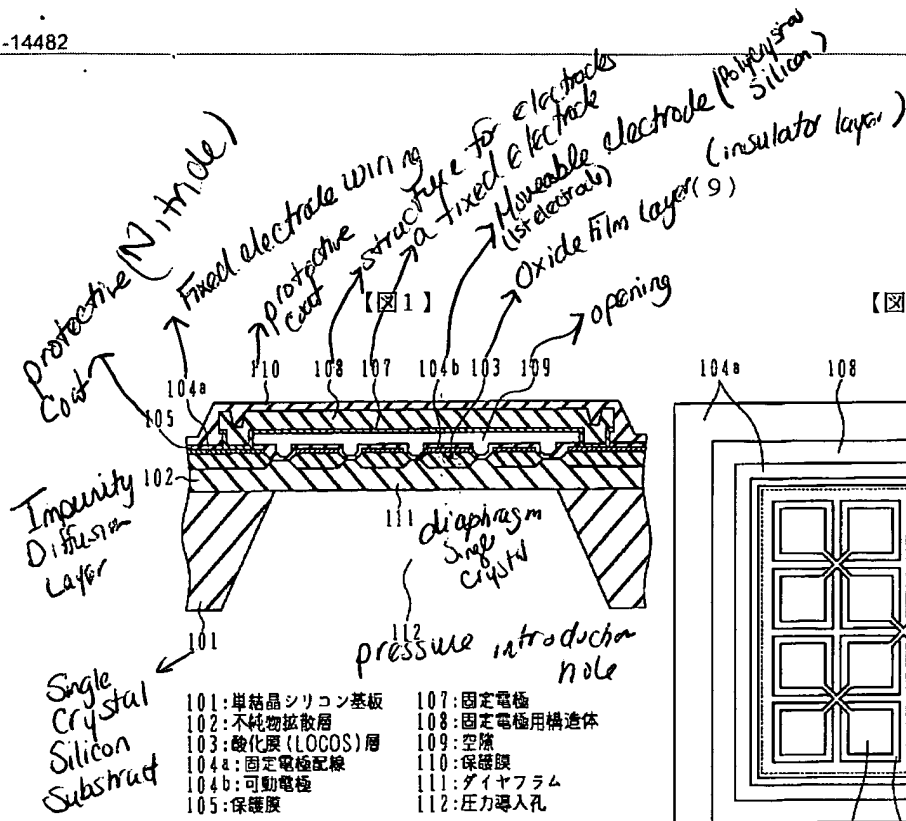 -14482
protective (Nitride)
Coat
Fixed electrode wiring
protective
coat
structure for electrodes
a fixed electrode
Moveable electrode (Polycrystal
Silicon)
(1st electrode)
Oxide Film layer (9)
(insulator layer)
opening
【図1】
【図
104a
110
108
107
104b
103
109
104a
108
105
102
Impurity
Diffusion
Layer
111
diaphragm
Single
crystal
101
112
pressure introduction
hole
Single
Crystal
Silicon
Substract
101:単結晶シリコン基板
102:不純物拡散層
103:酸化膜(LOCOS)層
104a:固定電極配線
104b:可動電極
105:保護膜
107:固定電極
108:固定電極用構造体
109:空隙
110:保護膜
111:ダイヤフラム
112:圧力導入孔